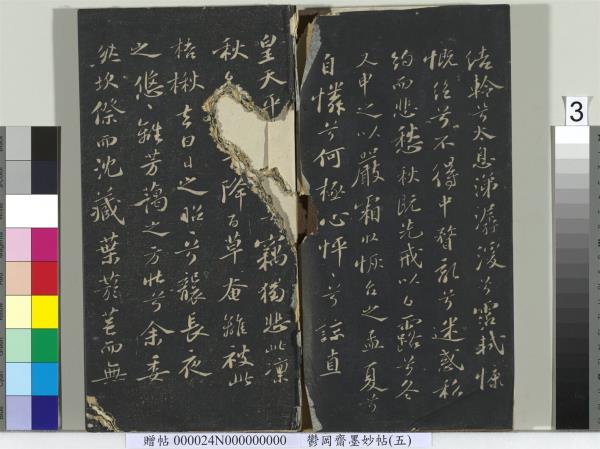 結軨兮太息涕潺湲兮霑軾慷
慨絕兮不得中瞀亂兮迷惑私
約而悲愁秋既先戒以白露兮冬
又申之以嚴霜收恢台之孟夏兮
自憐兮何極心怦〻兮諒直
皇天平 竊獨悲此凜
秋 降百草奄離披此
梧楸去白日之昭〻兮襲長夜
之悠〻離芳藹之方壯兮余委
然坎傺而沈藏葉菸芑而無
3
贈帖 000024N000000000 鬱岡齋墨妙帖(五)